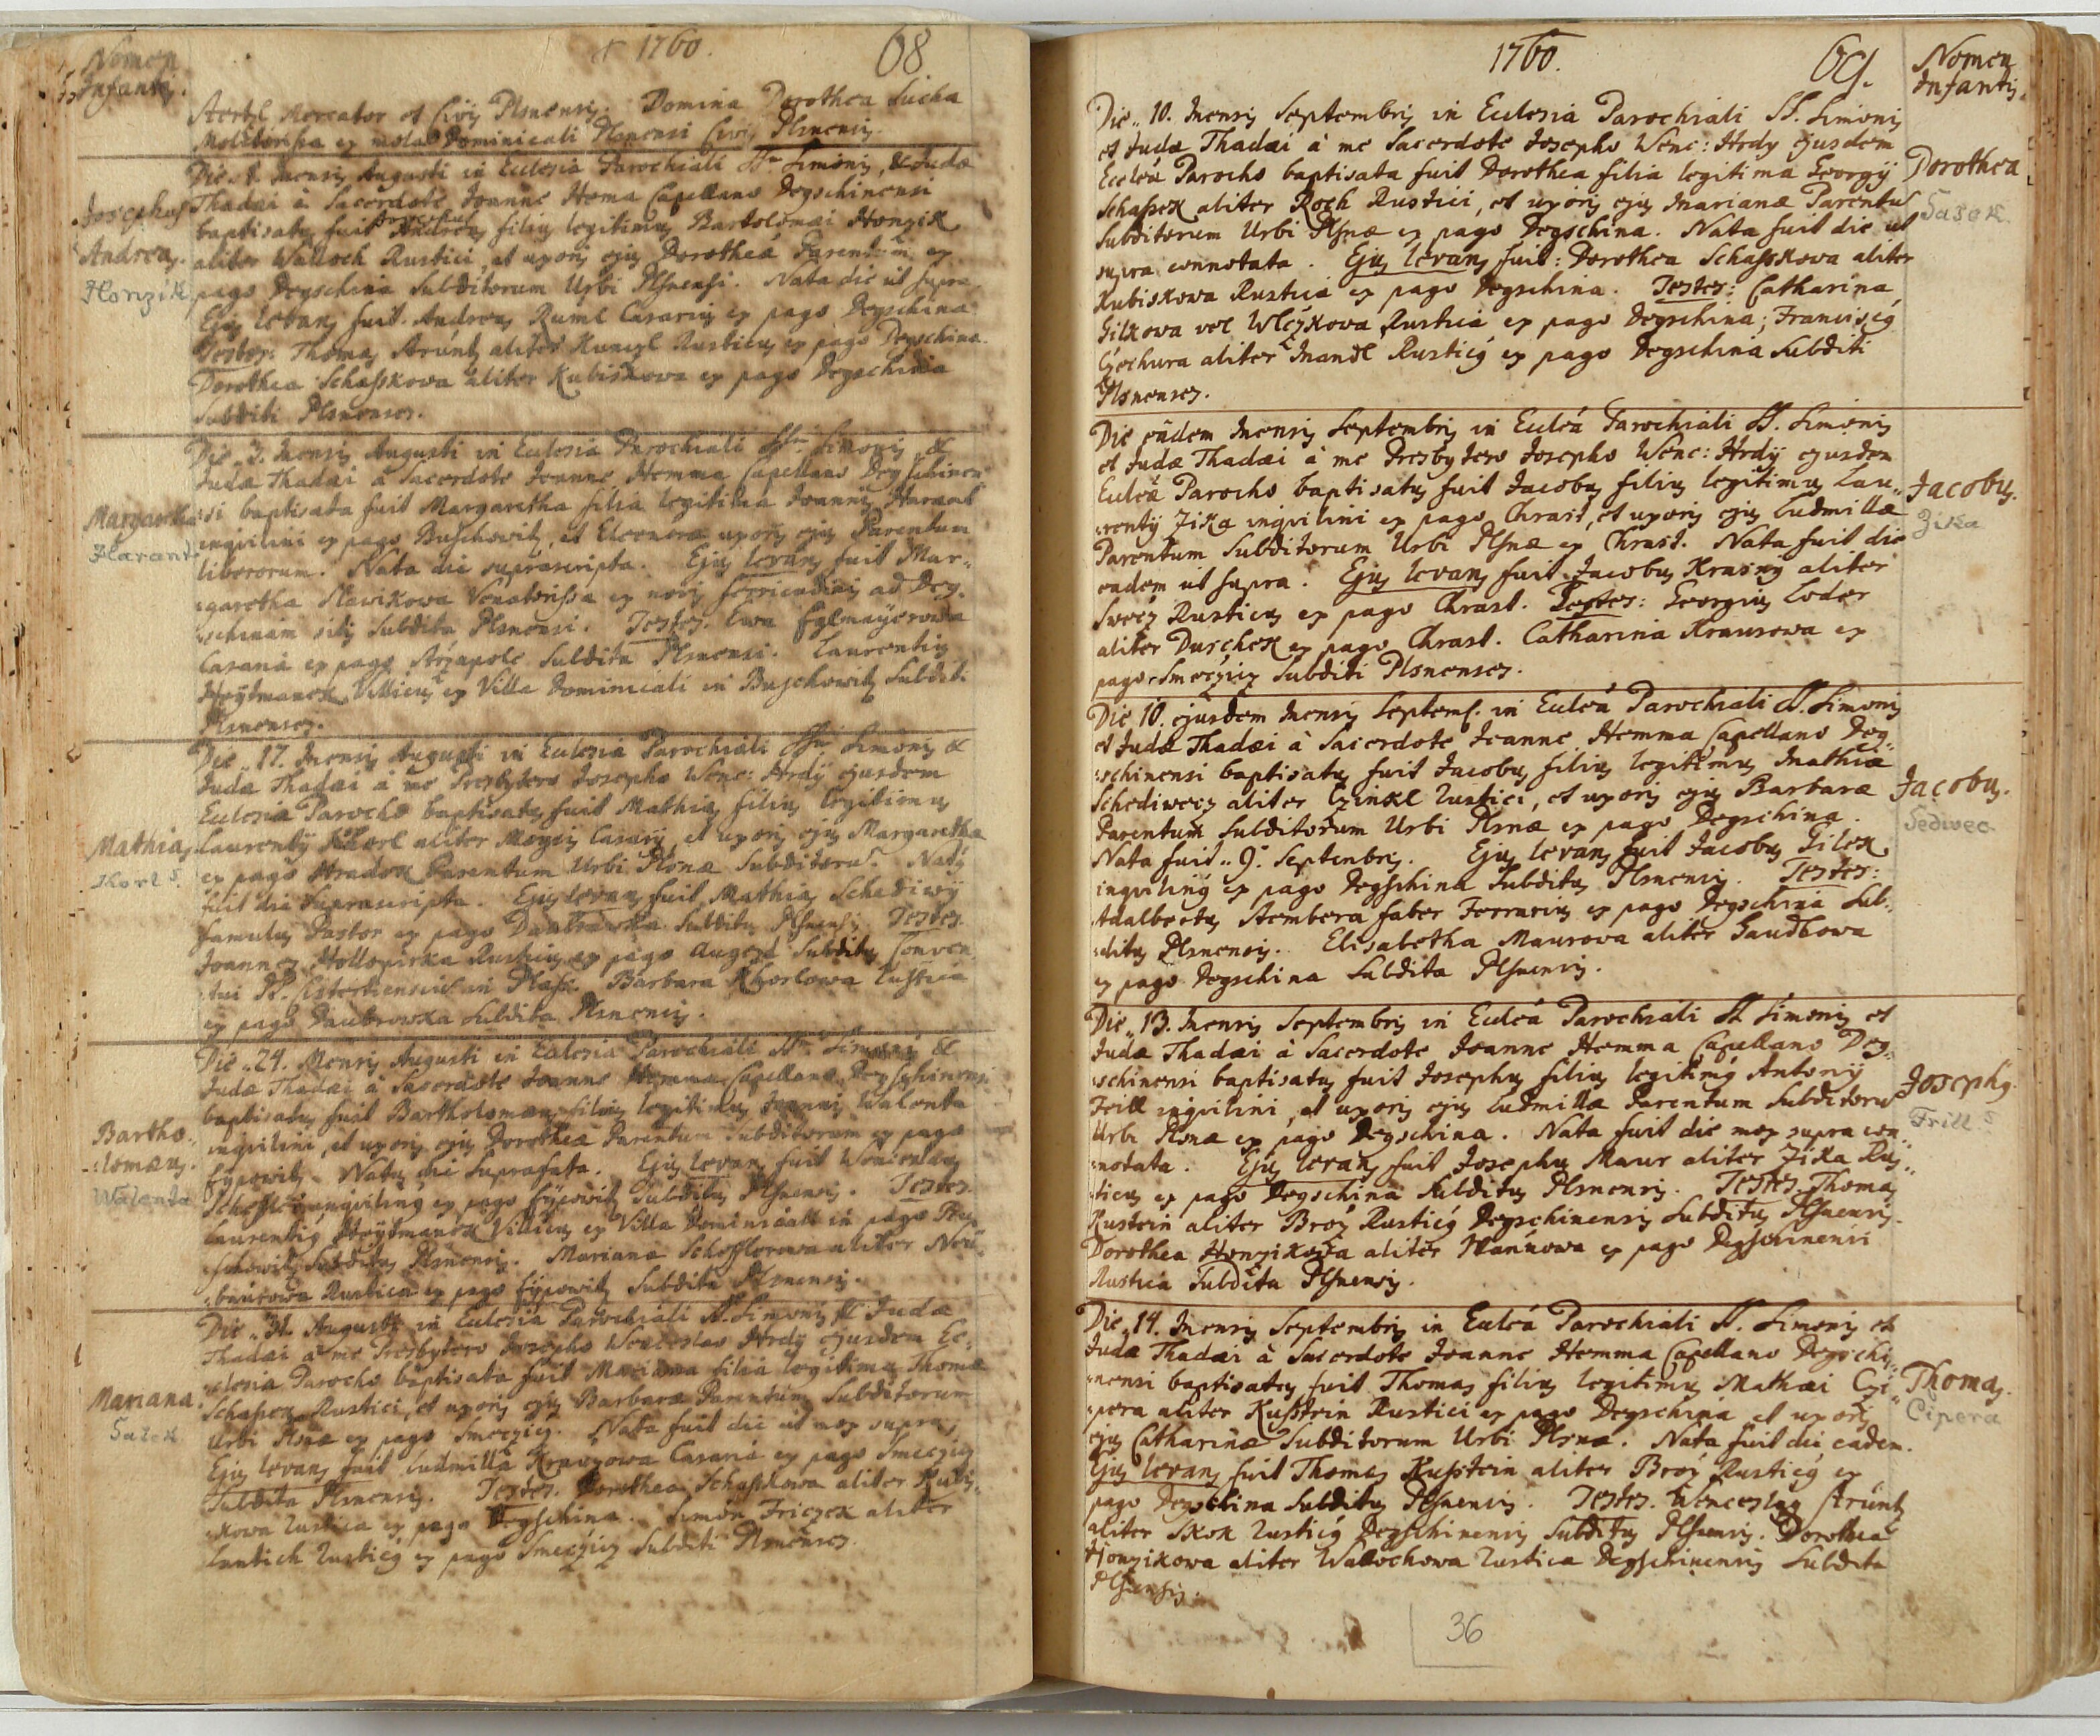 Nomen
Infantis.
1760.
68
Mercator et Civis Plsnensis. Domina Dorothea Sucha
Molitorissa ex mola Dominicali Plsnensi Civis Plsnensis.
Die Mensis Augusti in Eclesia Parochiali SSm. Simonis, & Judæ
Thadæi à Sacerdote Joanne Hema Capellano Deyschinensi
baptisatus fuit Andreas filius legitimus Bartolomæi Honzik
aliter Walloch Rustici, et uxoris ejus Dorotheæ Parentum ex
pago Deyschina Subditorum Urbi Plsnensi. Nata die ut supra.
Ejus levans fuit. Andreas Ruml Casarius ex pago Deyschina
Testes: Thomas Strúntz aliter Kunczl Rusticus ex pago Deyschina.
Dorothea Schasskowa aliter Kubiskowa ex pago Deyschina
Subditi Plsnenses.
Josephus
Andreas.
Honzik
Die 3. Mensis Augusti in Eclesia Parochiali SSm. Simonis &
Judæ Thadæi à Sacerdote Joanne Hemma Capellano Deyschinen
si baptisata fuit Margaretha filia legitima Joannis Harant
inqvilini ex pago Buschowitz, et Eleonoræ uxoris ejus Parentum
liberorum. Nata die suprascripta. Ejus levans fuit Mar-
garetha Slavikowa Venatorissa ex novis ad Dey-
schinam sitis Subdita Plsnensi. Testes. Ewa
Casaria ex pago Subdita Plsnensi. Laurentius
Heÿtmanek Villicus ex Villa Dominicali in Buschowitz Subditi
Plsnenses.
Margaretha
Harant
Die 17. Mensis Augusti in Eclesia Parochiali SSm. Simonis &
Judæ Thadæi à me Presbytero Josepho Wenc: Hrdÿ ejusdem
Eclesiæ Parocho baptisatus fuit Mathias filius legitimus
Laurentÿ Khorl aliter Casarÿ, et uxoris ejus Margarethæ
ex pago Hradek Parentum Urbi Plsnæ Subditoru. Natus
fuit die suprascripta. Ejus levans fuit Mathias Schediwÿ
famulus Pastor ex pago Daubrawka Subditus Plsnensis Testes.
Joannes Hollopirka Rusticus ex pago Augezd Subditus Conven
tui Plass. Barbara Khorlowa Rustica
ex pago Daubrowka Subdita Plsnensis.
Mathias
Korl
Die 24. Mensis Augusti in Eclesia Parochiali SSm. Simonis &
Judæ Thadæi à Sacerdote Joanne Hemma Capellano Deyschinensi
baptisatus fuit Bartholomæus filius legitimus Joannis Walenta
inqvilini, et uxoris ejus Dorotheæ Parentum Subditorum ex pago
Eypowitz. Natus die suprafata. Ejus levans fuit Wenceslaus
inqvilinus ex pago Eypowitz Subditus Plsnensis. Testes.
Laurentius Heÿtmanek Villicus ex Villa Dominicali in pago Bu
schowitz Subditus Plsnensis. Mariana Schofflerowa aliter Neu-
baurowa Rustica ex pago Eypowitz Subdita Plsnensis.
Bartho-
lomæus.
Walenta
Die 31. Augusti in Eclesia Parochiali SS. Simonis & Judæ
Thadæi à me Presbytero Josepho Wenceslao Hrdÿ ejusdem Ec-
clesiæ Parocho baptisata fuit Mariana filia legitima Thomæ
Schassek Rustici, et uxoris ejus Barbaræ Parentum Subditorum
Urbi Plsnæ ex pago Smeczicz. Nata fuit die ut mox supra.
Ejus levans fuit Ludmilla Krausowa Casaria ex pago Smeczicz
Subdita Plsnensis. Testes. Dorothea Schasskowa aliter Kubis-
kowa Rustica ex pago Deyschina. Simon Friczek aliter
Lantich Rusticus ex pago Smeczicz Subditi Plsnenses.
Mariana.
Sašek
1760.
69.
Nomen
Infantis.
Die 10. Mensis Septembris in Eclesia Parochiali SS. Simonis
et Judæ Thadæi à me Sacerdote Josepho Wenc: Hrdy ejusdem
Ecclæ Parocho baptisata fuit Dorothea filia legitima Georgÿ
Schassek aliter Roch Rustici, et uxoris ejus Marianæ Parentu
Subditorum Urbi Plsnæ ex pago Deyschina. Nata fuit die ut
supra connotata. Ejus levans fuit: Dorothea Schasskowa aliter
Kubiskowa Rustica ex pago Deyschina. Testes: Catharina
Gilkowa vel Wlczkowa Rustica ex pago Deyschina; Franciscus
Czechura aliter Mandl Rusticus ex pago Deyschina Subditi
Plsnenses.
Dorothea
Sašek.
Die eadem Mensis Septembris in Eclea Parochiali SS. Simonis
et Judæ Thadæi à me Presbytero Josepho Wenc: Hrdÿ ejusdem
Ecleæ Parocho baptisatus fuit Jacobus filius legitimus Lau-
rentÿ Zika inqvilini ex pago Chrast, et uxoris ejus Ludmillæ
Parentum Subditorum Urbi Plsnæ ex Chrast. Nata fuit die
eadem ut supra. Ejus levans fuit Jacobus Krasnÿ aliter
Swecz Rusticus ex pago Chrast. Testes: Georgius Loder
aliter Duschek ex pago Chrast. Catharina Krausowa ex
pago Smeczicz Subditi Plsnenses.
Jacobus.
Zika
Die 10. ejusdem Mensis Septemb. in Ecleá Parochiali SS. Simonis
et Judæ Thadæi à Sacerdote Joanne Hemma Capellano Dey-
schinensi baptisatus fuit Jacobus filius legitimus Mathiæ
Schediwecz aliter Czinkl Rustici, et uxoris ejus Barbaræ
Parentum Subditorum Urbi Plsnæ ex pago Deyschina.
Nata fuit 9. Septembris. Ejus levans fuit Jacobus Gilek
inqvilinus ex pago Deyschina Subditus Plsnensis. Testes:
Adalbertus Stembera faber Ferrarius ex pago Deyschina Sub-
ditus Plsnensis. Elisabetha Maurowa aliter Gaudlowa
ex pago Deyschina Subdita Plsnensis.
Jacobus.
Sediwec
Die 13. Mensis Septembris in Ecleá Parochiali SS. Simonis et
Judæ Thadæi à Sacerdote Joanne Hemma Capellano Dey-
schinensi baptisatus fuit Josephus filius legitimus Antonÿ
Frill inqvilini, et uxoris ejus Ludmillæ Parentum Subditoru
Urbi Plsnæ ex pago Deyschina. Nata fuit die mox supra con-
notata. Ejus levans fuit Josephus Maur aliter Zika Rus-
ticus ex pago Deyschina Subditus Plsnensis. Testes Thomas
Kustein aliter Brož Rusticus Deyschinensis Subditus Plsnensis.
Dorothea Honzikowa aliter Wanúowa ex pago Deyschinensi
Rustica Subdita Plsnensis.
Josephus.
Frill
Die 14. Mensis Septembris in Ecleá Parochiali SS. Simonis et
Judæ Thadæi à Sacerdote Joanne Hemma Capellano Deyschi-
nensi baptisatus fuit Thomas filius legitimus Mathæi Czi-
pera aliter Kusstein Rustici ex pago Deyschina et uxoris
ejus Catharinæ Subditorum Urbi Plsnæ. Nata fuit die eadem.
Ejus levans fuit Thomas Kusstein aliter Brož Rusticus ex
pago Deyschina Subditus Plsnensis. Testes. Wenceslaus Strúntz
aliter Skok Rusticus Deyschinensis Subditus Plsnensis. Dorothea
Honzikowa aliter Wallochowa Rustica Deyschinensis Subdita
Plsnensis.
Thomas.
Cipera
36